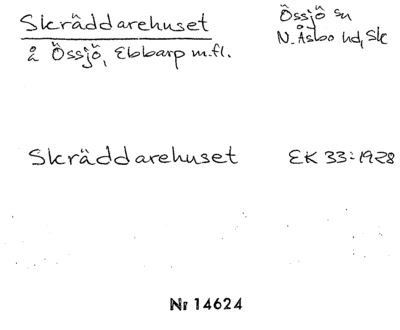 Skräddarehuset
å Össjö, Ebbarp m.fl.
Össjö sn
N. Åsbo hd, Sk
Skräddarehuset EK 33:1928
Nr 14624